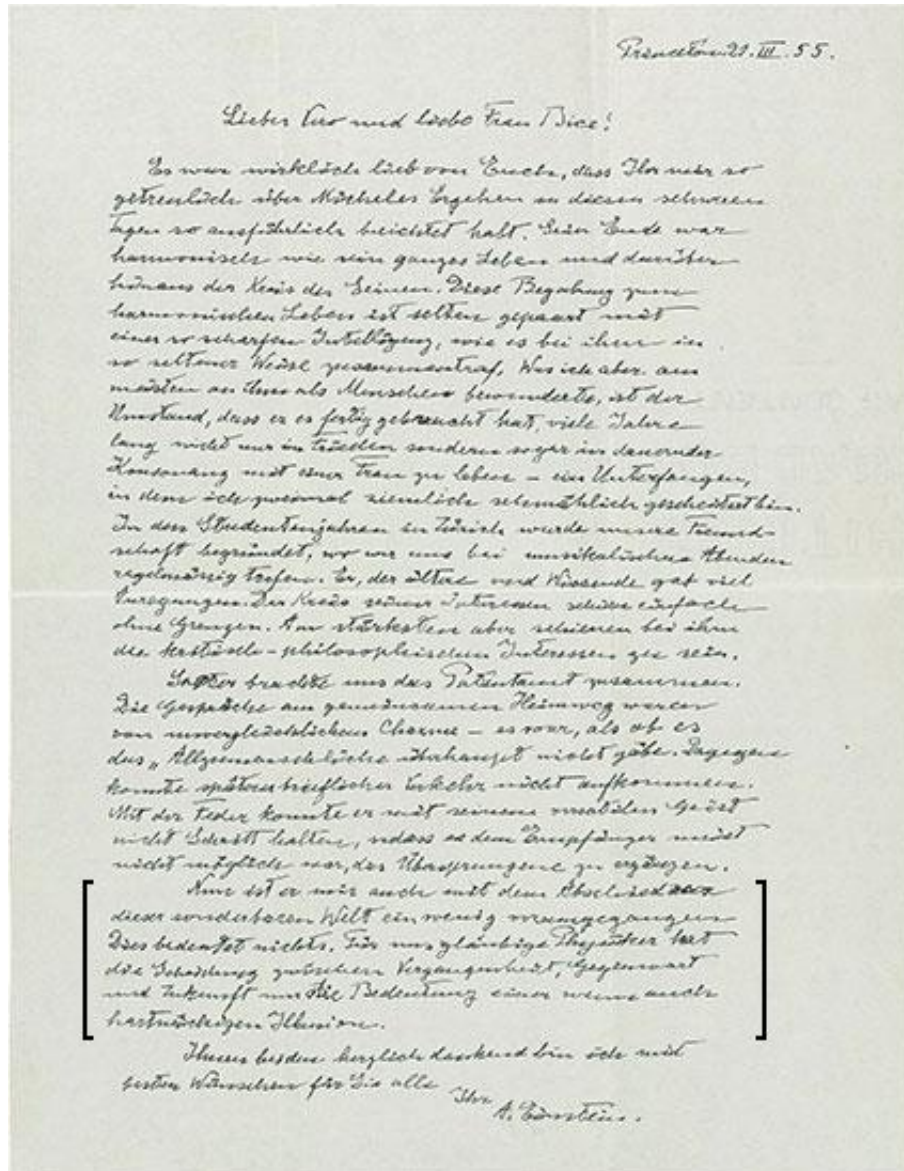 Princeton 21. III. 55.
Lieber Vero und liebe Frau Bice!
Es war wirklich lieb von Euch, dass Ihr mir so
getreulich über Micheles Ergehen in diesen schweren
Tagen so ausführlich berichtet habt. Sein Ende war
harmonisch wie sein ganzes Leben und darüber
hinaus der Kreis der Seinen. Diese Begabung zum
harmonischen Leben ist selten gepaart mit
einer so scharfen Intelligenz, wie es bei ihm in
so seltener Weise zusammentraf. Was ich aber am
meisten an ihm als Menschen bewunderte, ist der
Umstand, dass er es fertig gebracht hat, viele Jahre
lang nicht nur in Frieden sondern sogar in dauernder
Konsonanz mit einer Frau zu leben – ein Unterfangen,
in dem ich zweimal ziemlich schmählich gescheitert bin.
In den Studentenjahren in Zürich wurde unsere Freund-
schaft begründet, wo wir uns bei musikalischen Abenden
regelmässig trafen. Er, der ältere und Wissende gab viel
Anregungen. Der Kreis seiner Interessen schien einfach
ohne Grenzen. Am stärksten aber schienen bei ihm
die kritisch-philosophischen Interessen zu sein.
Später brachte uns das Patentamt zusammen.
Die Gespräche am gemeinsamen Heimweg waren
von unvergleichlichem Charme – es war, als ob es
das „Allzumenschliche überhaupt nicht gäbe. Dagegen
konnte später brieflicher Verkehr nicht aufkommen.
Mit der Feder konnte er mit seinem Geist
nicht Schritt halten, sodass es dem Empfänger meist
nicht möglich war, das Übersprungene zu ergänzen.
Nun ist er mir auch mit dem Abschied von
dieser sonderbaren Welt ein wenig vorausgegangen.
Dies bedeutet nichts. Für uns gläubige Physiker hat
die Scheidung zwischen Vergangenheit, Gegenwart
und Zukunft nur die Bedeutung einer wenn auch
hartnäckigen Illusion.
Ihnen beiden herzlich dankend bin ich mit
besten Wünschen für Sie alle
Ihr
A. Einstein.